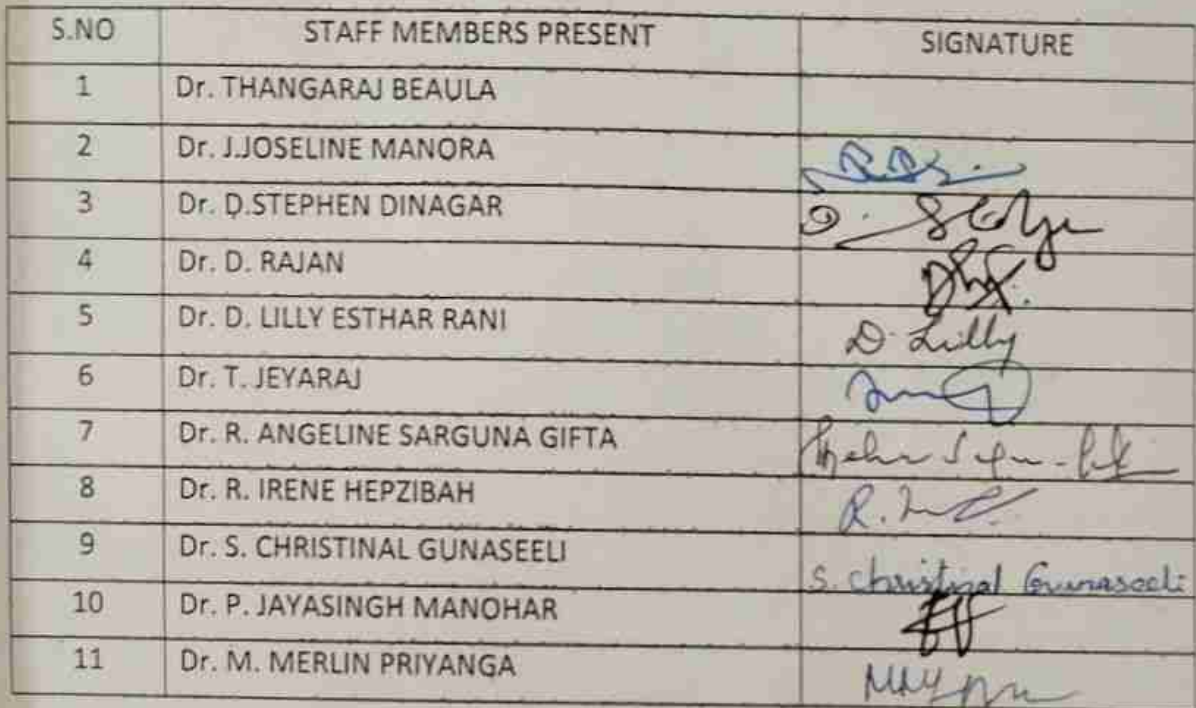 S.NO STAFF MEMBERS PRESENT SIGNATURE
1 Dr. THANGARAJ BEAULA
2 Dr. J.JOSELINE MANORA
3 Dr. D.STEPHEN DINAGAR
4 Dr. D. RAJAN
5 Dr. D. LILLY ESTHAR RANI D. Lilly
6 Dr. T. JEYARAJ
7 Dr. R. ANGELINE SARGUNA GIFTA
8 Dr. R. IRENE HEPZIBAH
9 Dr. S. CHRISTINAL GUNASEELI S. Christinal Gunaseeli
10 Dr. P. JAYASINGH MANOHAR
11 Dr. M. MERLIN PRIYANGA